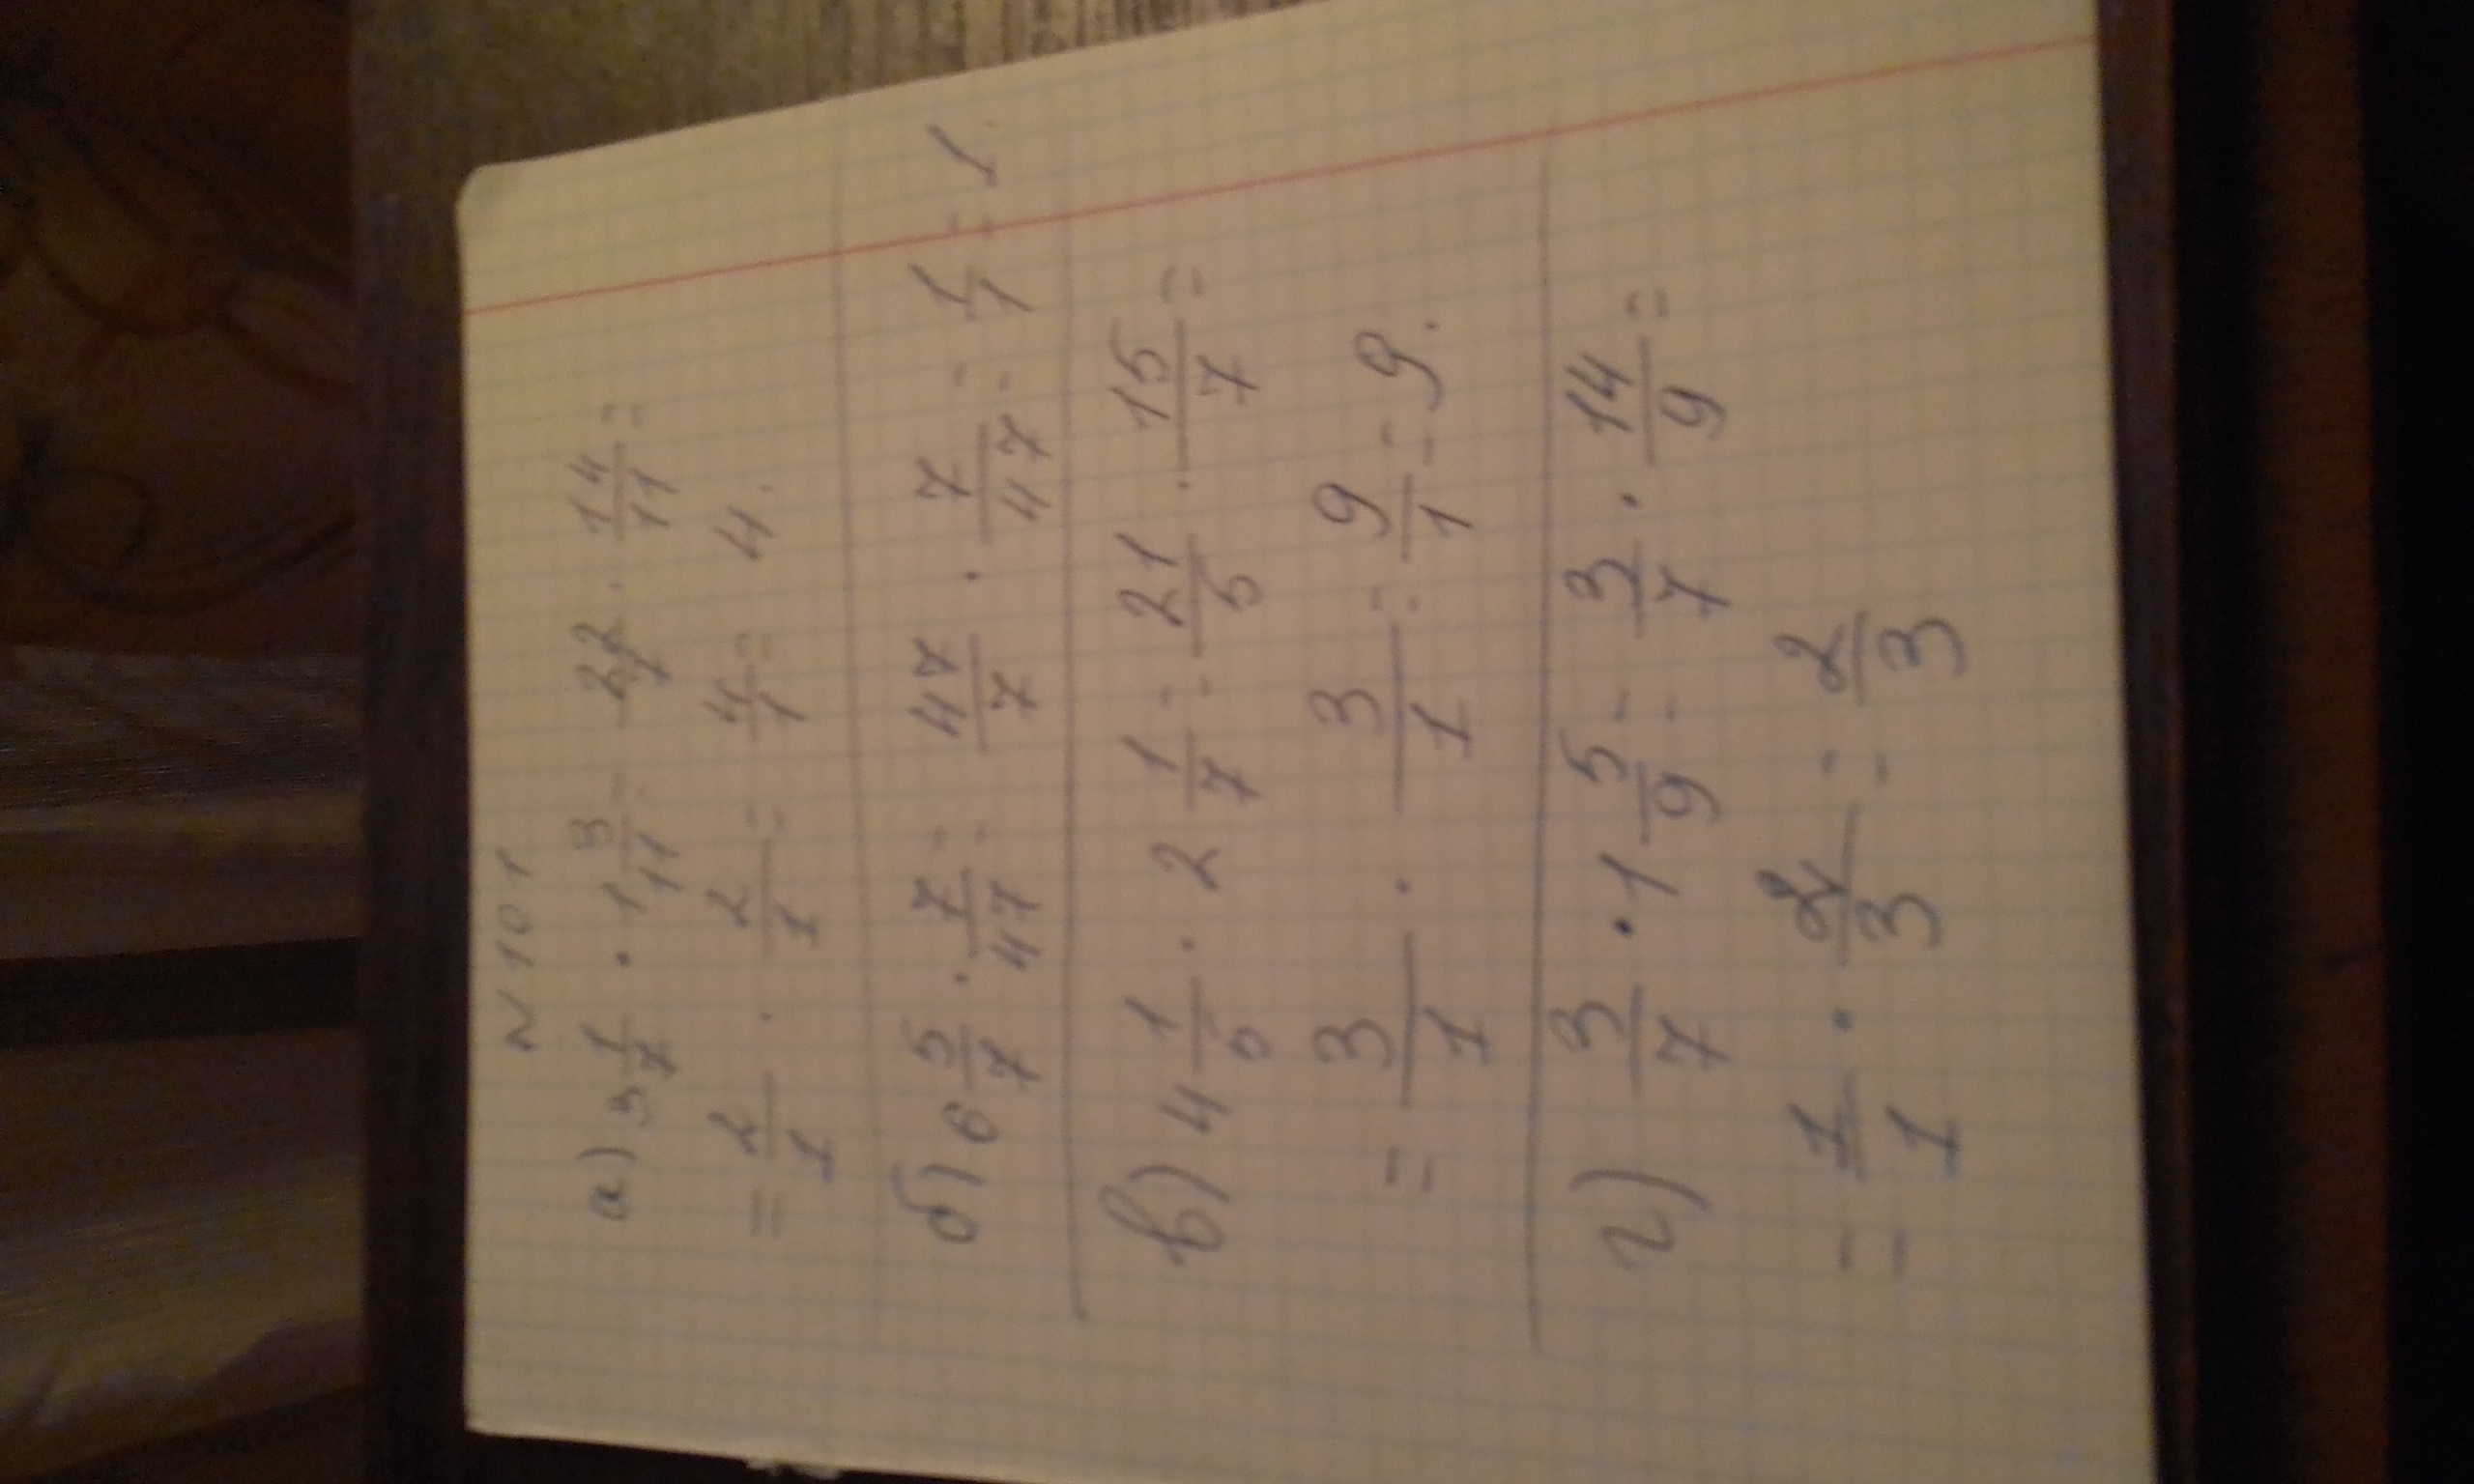 N 101
а) 3 1/7 · 1 3/11 = 22/7 · 14/11 =
= 2/1 · 2/1 = 4/1 = 4.
б) 6 5/7 · 7/47 = 47/7 · 7/47 = 1/1 = 1.
в) 4 1/5 · 2 1/7 = 21/5 · 15/7 =
= 3/1 · 3/1 = 9/1 = 9.
г) 3/7 · 1 5/9 = 3/7 · 14/9 =
= 1/1 · 2/3 = 2/3